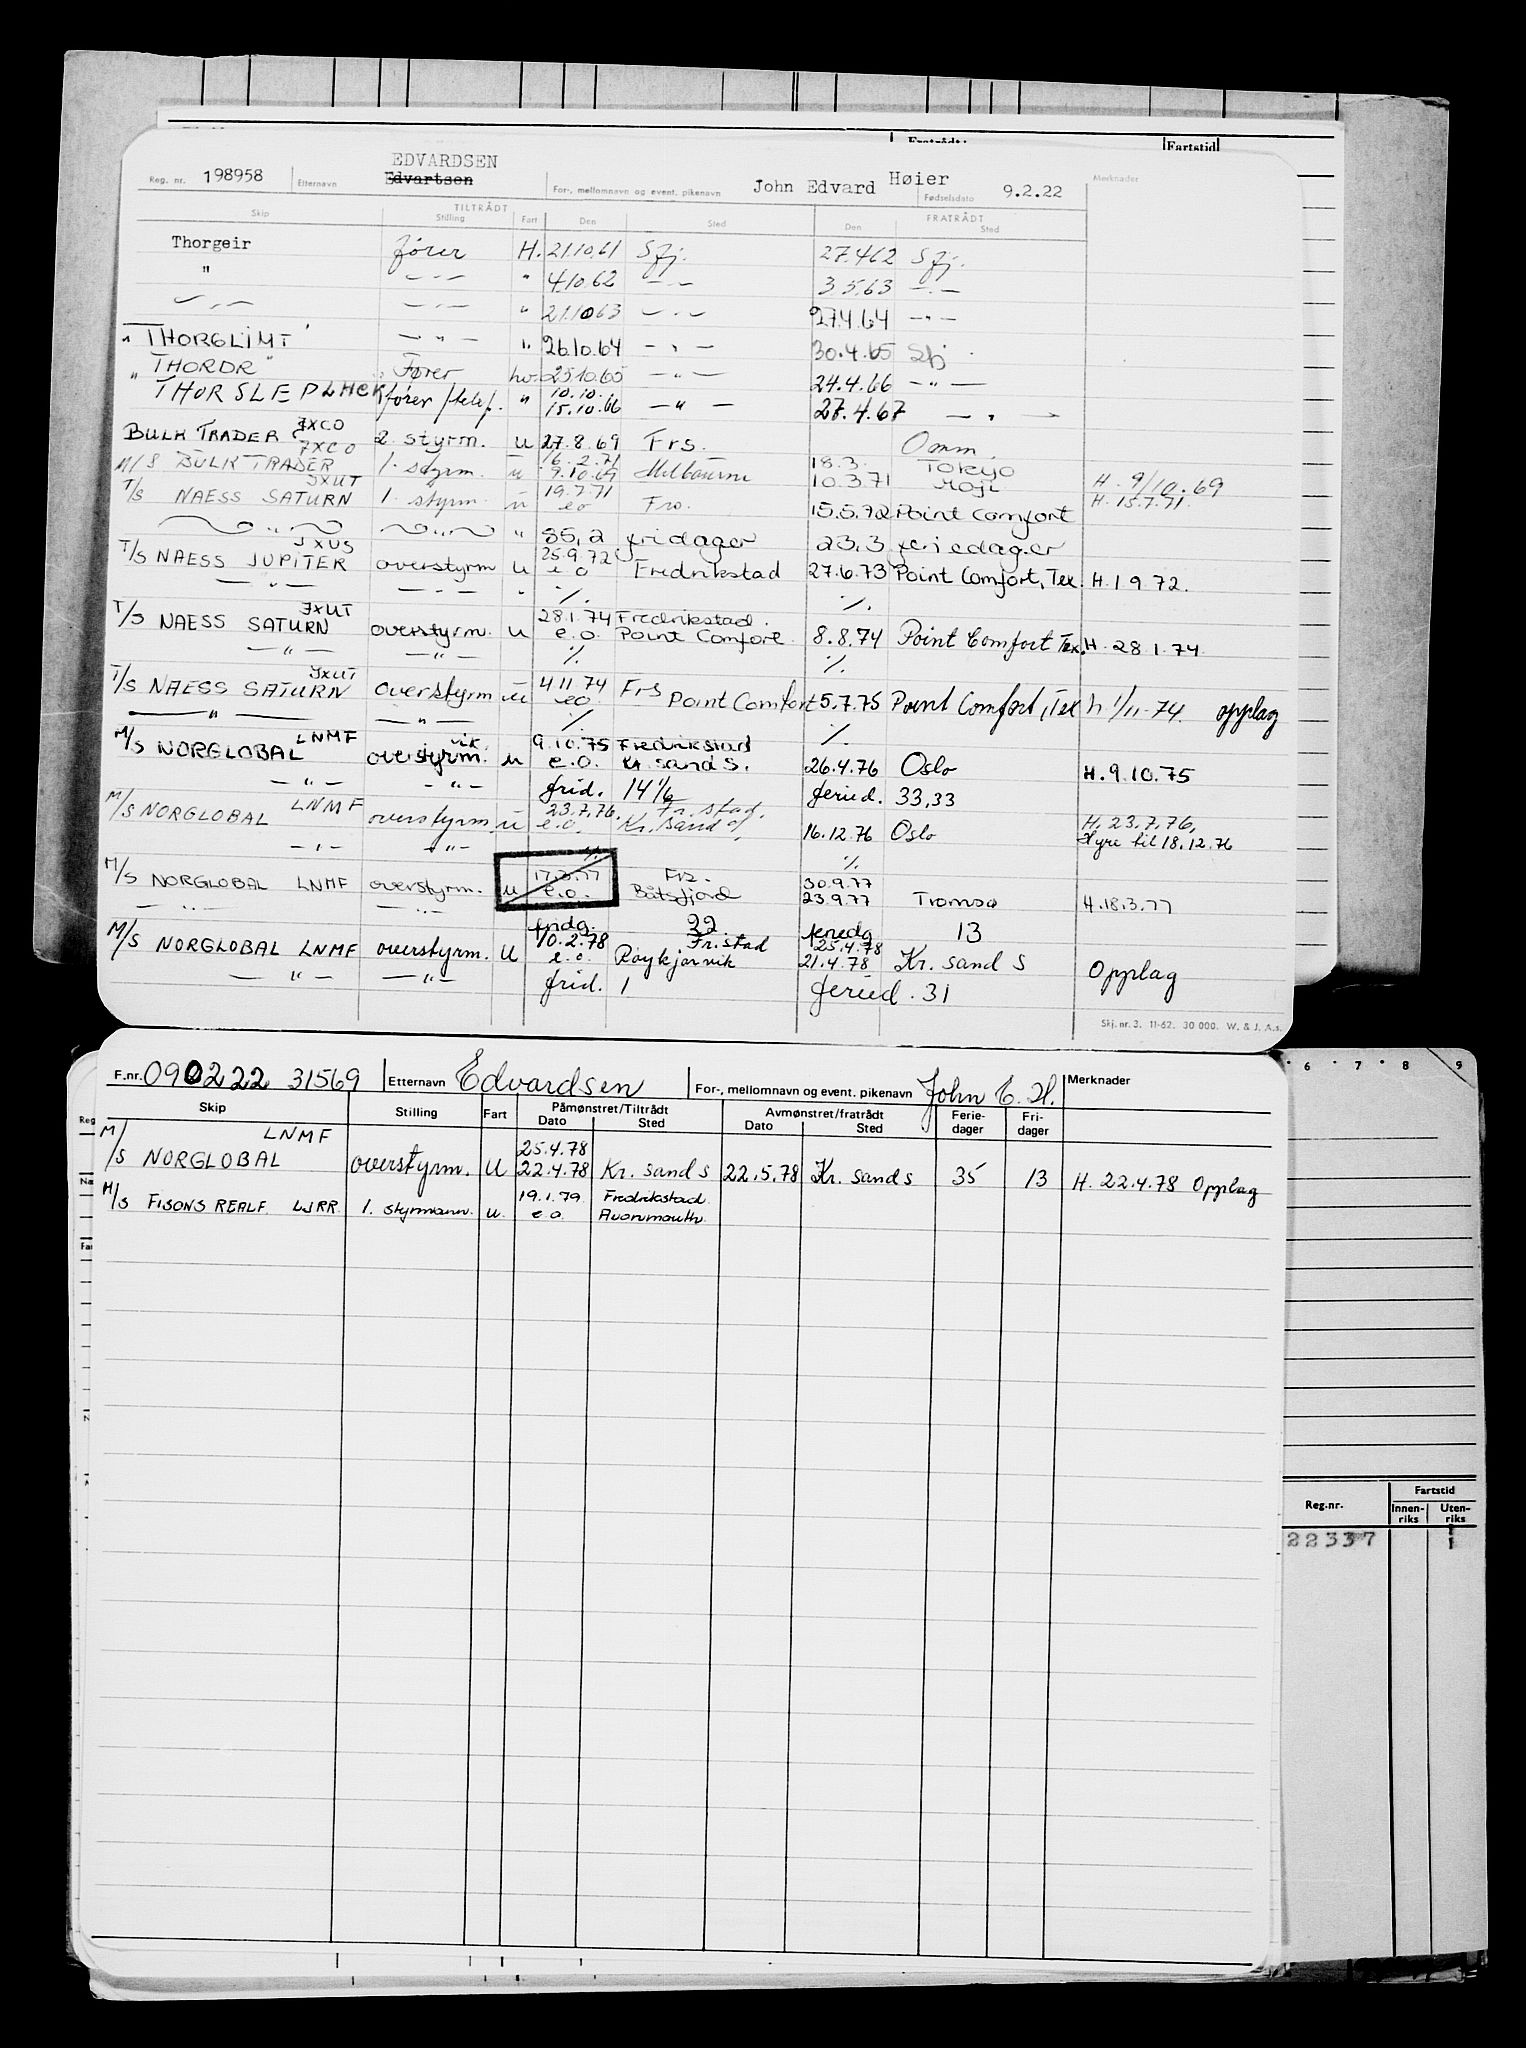 Fartstid
EDVARDSEN
Reg. nr. 198958 Etternavn Edvartsen For-, mellomnavn og event. pikenavn John Edvard Høier Fødselsdato 9.2.22 Merknader
TILTRÅDT FRATRÅDT
Skip Stilling Fart Den Sted Den Sted
Thorgeir fører H. 21.10.61 Sfj. 27.4.62 Sfj.
" — " — " 4.10.62 — " — 3.5.63 — " —
— " — — " — " 21.10.63 — " — 27.4.64 — " —
" THORGLIMT' — " — " 26.10.64 — " — 30.4.65 Sfj.
" THORDR" Fører hv. 25.10.65 — " — 24.4.66 — " —
THORSLEP LHCK fører/telef. " 10.10. 15.10.66 — " — 27.4.67 — " —
BULK TRADER JXCO 2. styrm. u 27.8.69 Frs. Omm.
M/S BULK TRADER JXCO 1. styrm. u 16.2.71 9.10.69 Melbourne 18.3. 10.3.71 Tokyo Moji H. 9/10.69
T/S NAESS SATURN JXUT 1. styrm. u 19.7.71 eo Fro. 15.5.72 Point Comfort H. 15.7.71.
— " — — " — " 85,2 fridager 23,3 feriedager
T/S NAESS JUPITER JXUS overstyrm u 25.9.72 e o Fredrikstad 27.6.73 Point Comfort, Tex. H. 1.9.72.
— " — — " — " %. %.
T/S NAESS SATURN JXUT overstyrm. u 28.1.74 e.o. Fredrikstad. Point Comfort. 8.8.74 Point Comfort Tex. H. 28.1.74.
— " — — " — % %
T/S NAESS SATURN JXUT overstyrm u 4.11.74 eo Frs Point Comfort 5.7.75 Point Comfort, Tex h 1/11-74. opplag
— " — — " — %. %.
M/S NORGLOBAL LNMF vik. overstyrm. u 9.10.75 e.o. Fredrikstad Kr. sand S. 26.4.76 Oslo H. 9.10.75
— " — — " — frid. 14 1/6 feried. 33,33
M/S NORGLOBAL LNMF overstyrm u 23.7.76. e.o. Fr.stad. Kr. Sand S/ 16.12.76 Oslo H. 23.7.76, Hyre til 18.12.76
— " — — " — %. %.
M/S NORGLOBAL LNMF overstyrm. u 17.3.77 e.o. Frs. Båtsfjord 30.9.77 23.9.77 Tromsø H. 18.3.77
— " — — " — fridg. 22 feriedg 13
M/S NORGLOBAL LNMF overstyrm. U 10.2.78 e.o. Fr.stad Røykjarvik 25.4.78 21.4.78 Kr. sand S Opplag
— " — — " — frid. 1 feried. 31
Skj. nr. 3. 11-62. 30 000. W. & J. A.s.
F.nr. 090222 31569 Etternavn Edvardsen For-, mellomnavn og event. pikenavn John E. H. Merknader
Skip Stilling Fart Påmønstret/Tiltrådt Avmønstret/fratrådt Ferie-dager Fri-dager
Dato Sted Dato Sted
M/S NORGLOBAL LNMF overstyrm. U 25.4.78 22.4.78 Kr. sand S 22.5.78 Kr. sand S 35 13 H. 22.4.78 Opplag
M/S FISONS REALF. LJRR. 1. styrmann. u. 19.1.79. e.o. Fredrikstad. Avonmouth.
6 7 8 9
Reg.nr. Fartstid
Innen-riks Uten-riks
22337